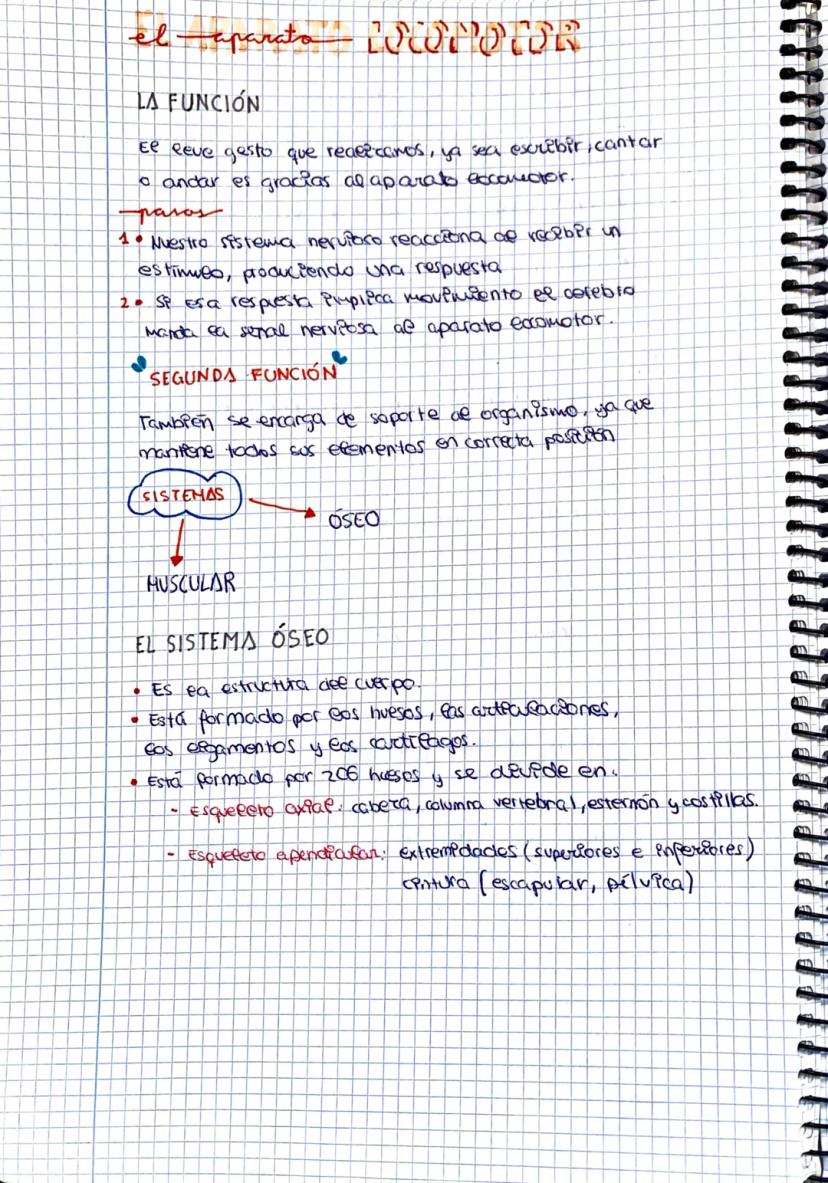 el aparato LOCOMOTOR
LA FUNCIÓN
El leve gesto que realizamos, ya sea escribir, cantar
o andar es gracias al aparato locomotor.
pasos
1. Nuestro sistema nervioso reacciona al recibir un
estímulo, produciendo una respuesta
2. Si esa respuesta implica movimiento el cerebro
manda la señal nerviosa al aparato locomotor.
SEGUNDA FUNCIÓN
También se encarga de soporte al organismo, ya que
mantiene todos sus elementos en correcta posición
SISTEMAS
ÓSEO
MUSCULAR
EL SISTEMA ÓSEO
• Es la estructura del cuerpo.
• Está formado por los huesos, las articulaciones,
los ligamentos y los cartílagos.
• Está formado por 206 huesos y se divide en:
- Esqueleto axial: cabeza, columna vertebral, esternón y costillas.
- Esqueleto apendicular: extremidades (superiores e inferiores)
cintura (escapular, pélvica)